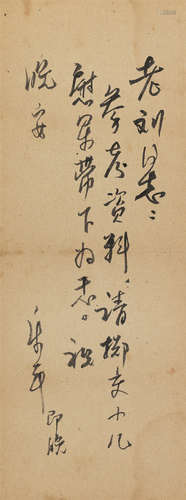 老刘同志：
参考资料，请掷交小凡
慰军带下为志。祝
晚安
即晚